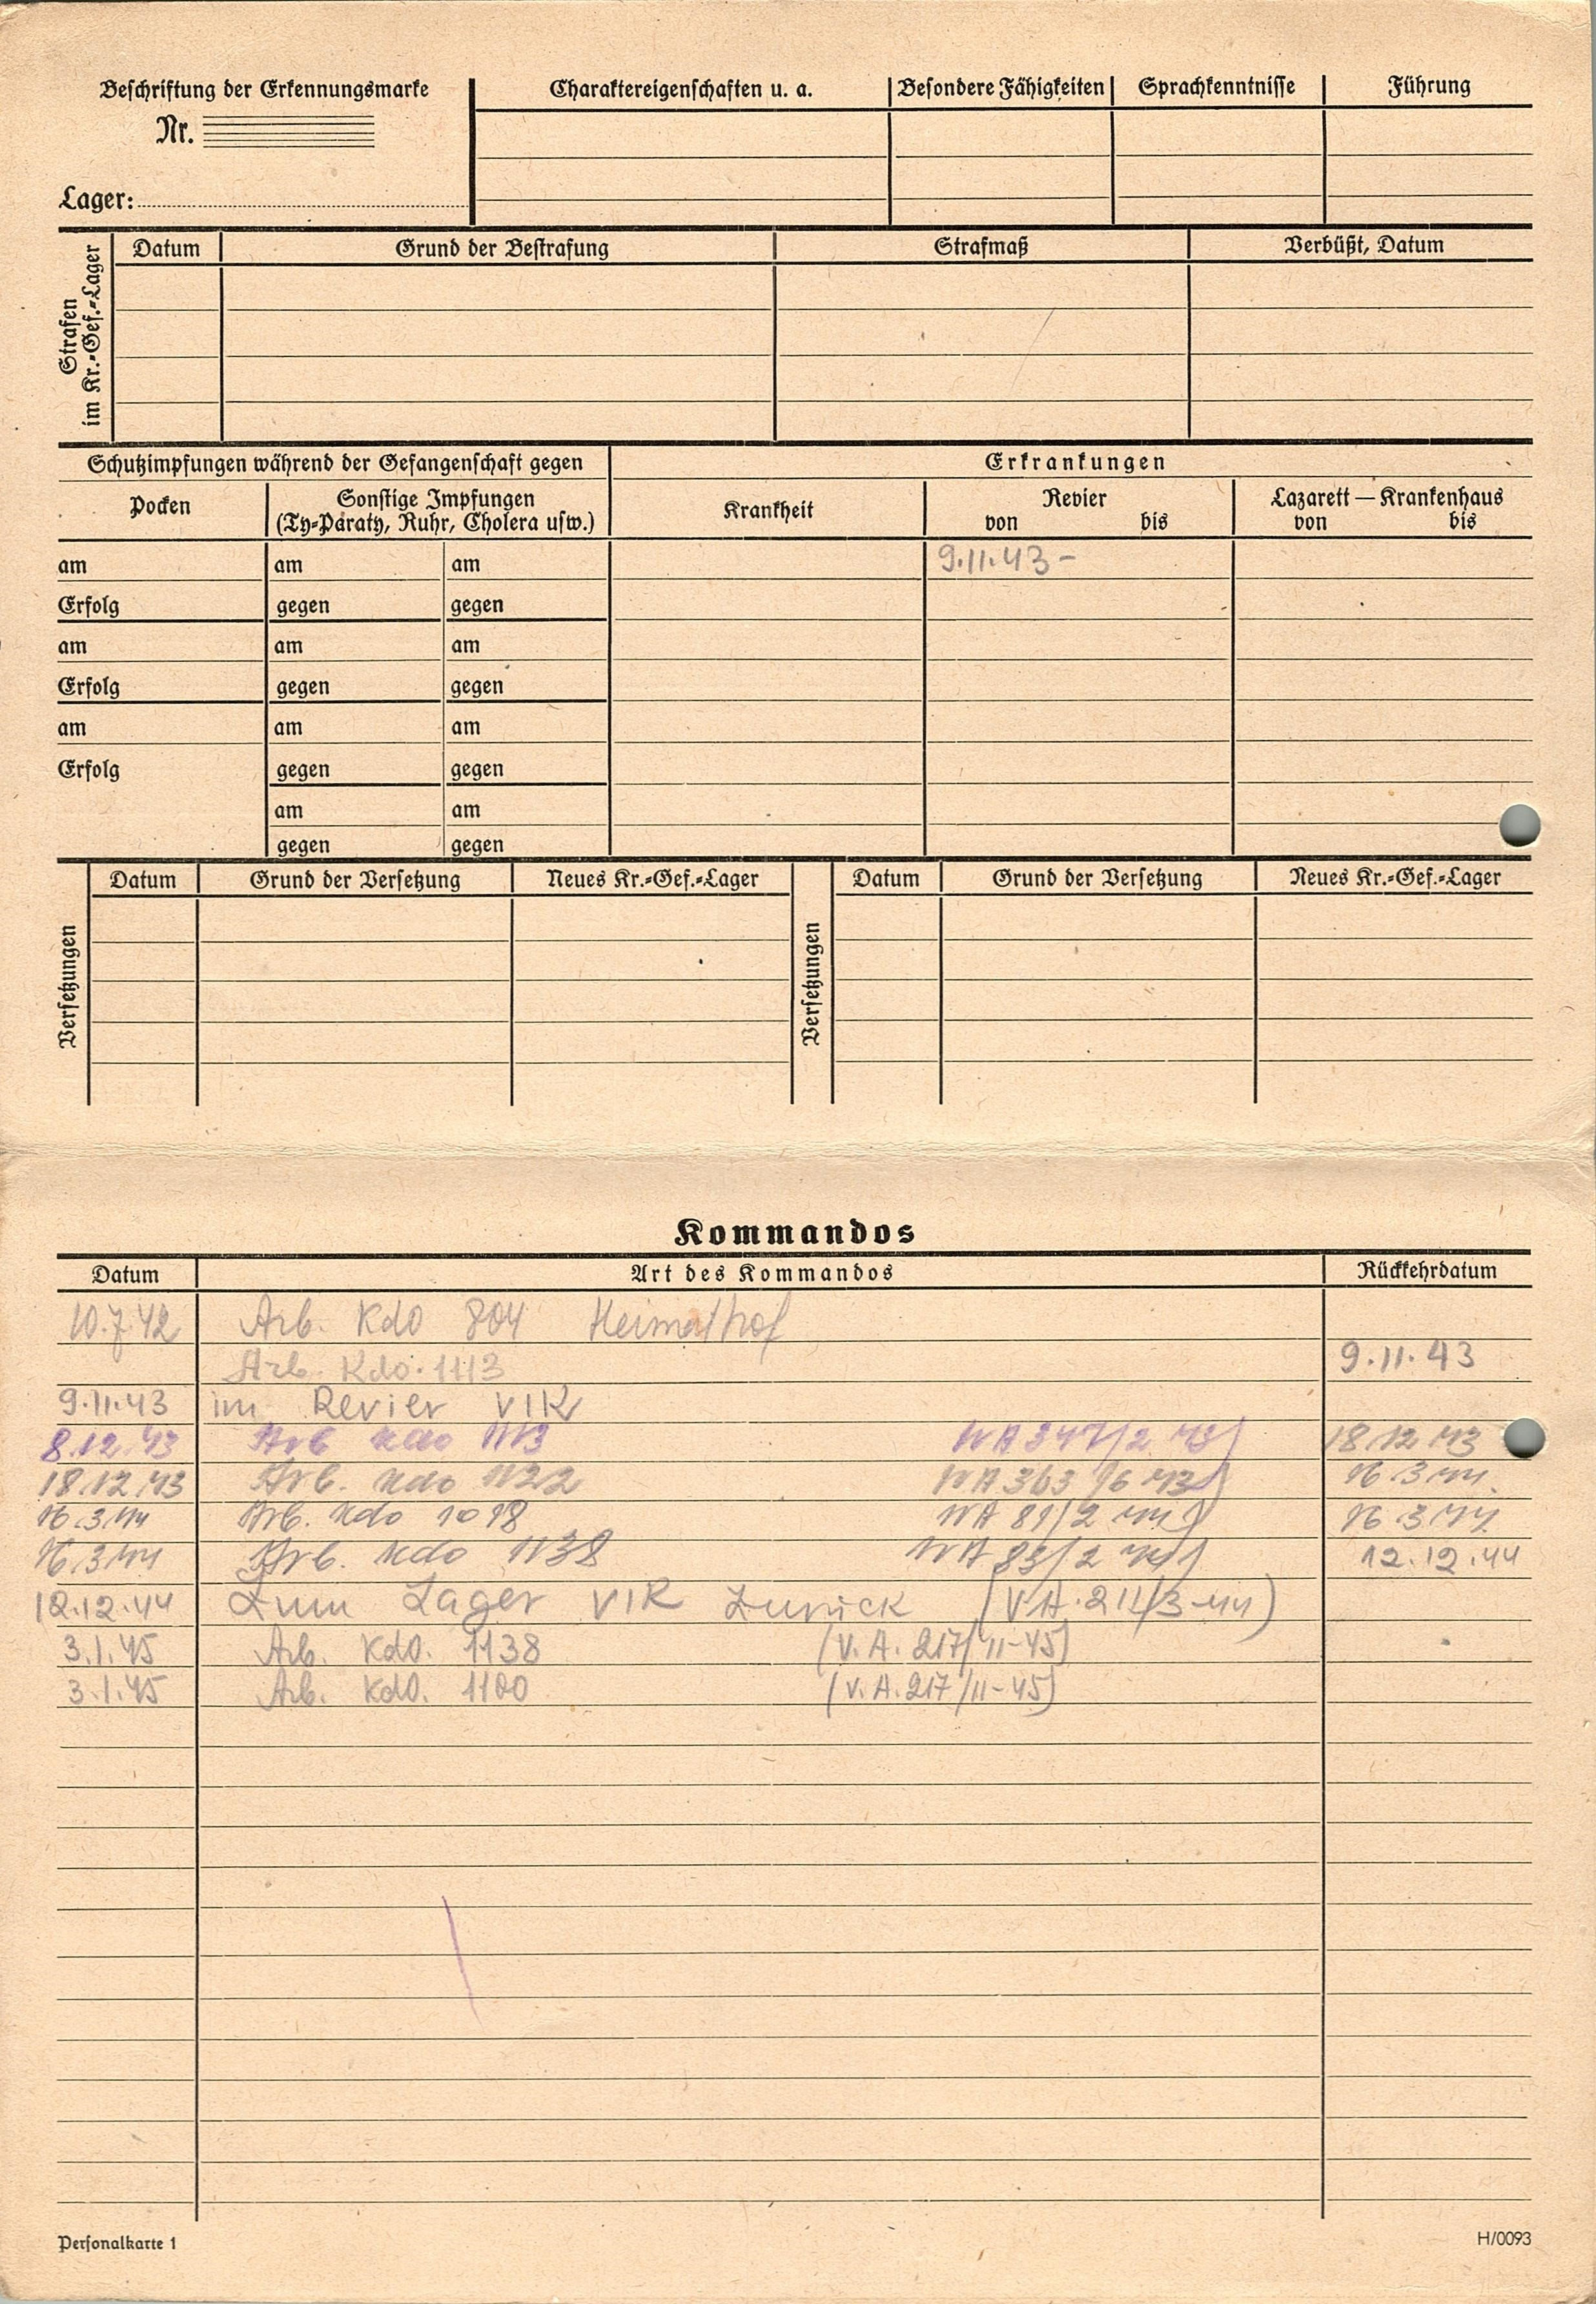 Beschriftung der Erkennungsmarke
Nr.
Lager:
Charaktereigenschaften u. a. Besondere Fähigkeiten Sprachkenntnisse Führung
Strafen
im Kr.-Gef.-Lager
Datum Grund der Bestrafung Strafmaß Verbüßt, Datum
Schutzimpfungen während der Gefangenschaft gegen
Erkrankungen
Pocken
Sonstige Impfungen
(Ty-Paraty, Ruhr, Cholera usw.)
Krankheit
Revier
von bis
Lazarett — Krankenhaus
von bis
am am am 9.11.43 -
Erfolg gegen gegen
am am am
Erfolg gegen gegen
am am am
Erfolg gegen gegen
am am
gegen gegen
Versetzungen
Datum Grund der Versetzung Neues Kr.-Gef.-Lager
Versetzungen
Datum Grund der Versetzung Neues Kr.-Gef.-Lager
Kommandos
Datum Art des Kommandos Rückkehrdatum
10.7.42 Arb. Kdo 804 Heimathof
Arb. Kdo. 1113 9.11.43
9.11.43 im Revier VIK
8.12.43 Arb Kdo 1113 18.12.43
18.12.43 Arb. Kdo 1122 16.3.44.
16.3.44 Arb. Kdo 1018 16.3.44.
16.3.44 Arb. Kdo 1138 12.12.44
12.12.44 Zum Lager VIK Zurück (V.A. 211/3-44)
3.1.45 Arb. Kdo. 1138 (V.A. 217/11-45)
3.1.45 Arb. Kdo. 1100 (V.A. 217/11-45)
Personalkarte 1
H/0093